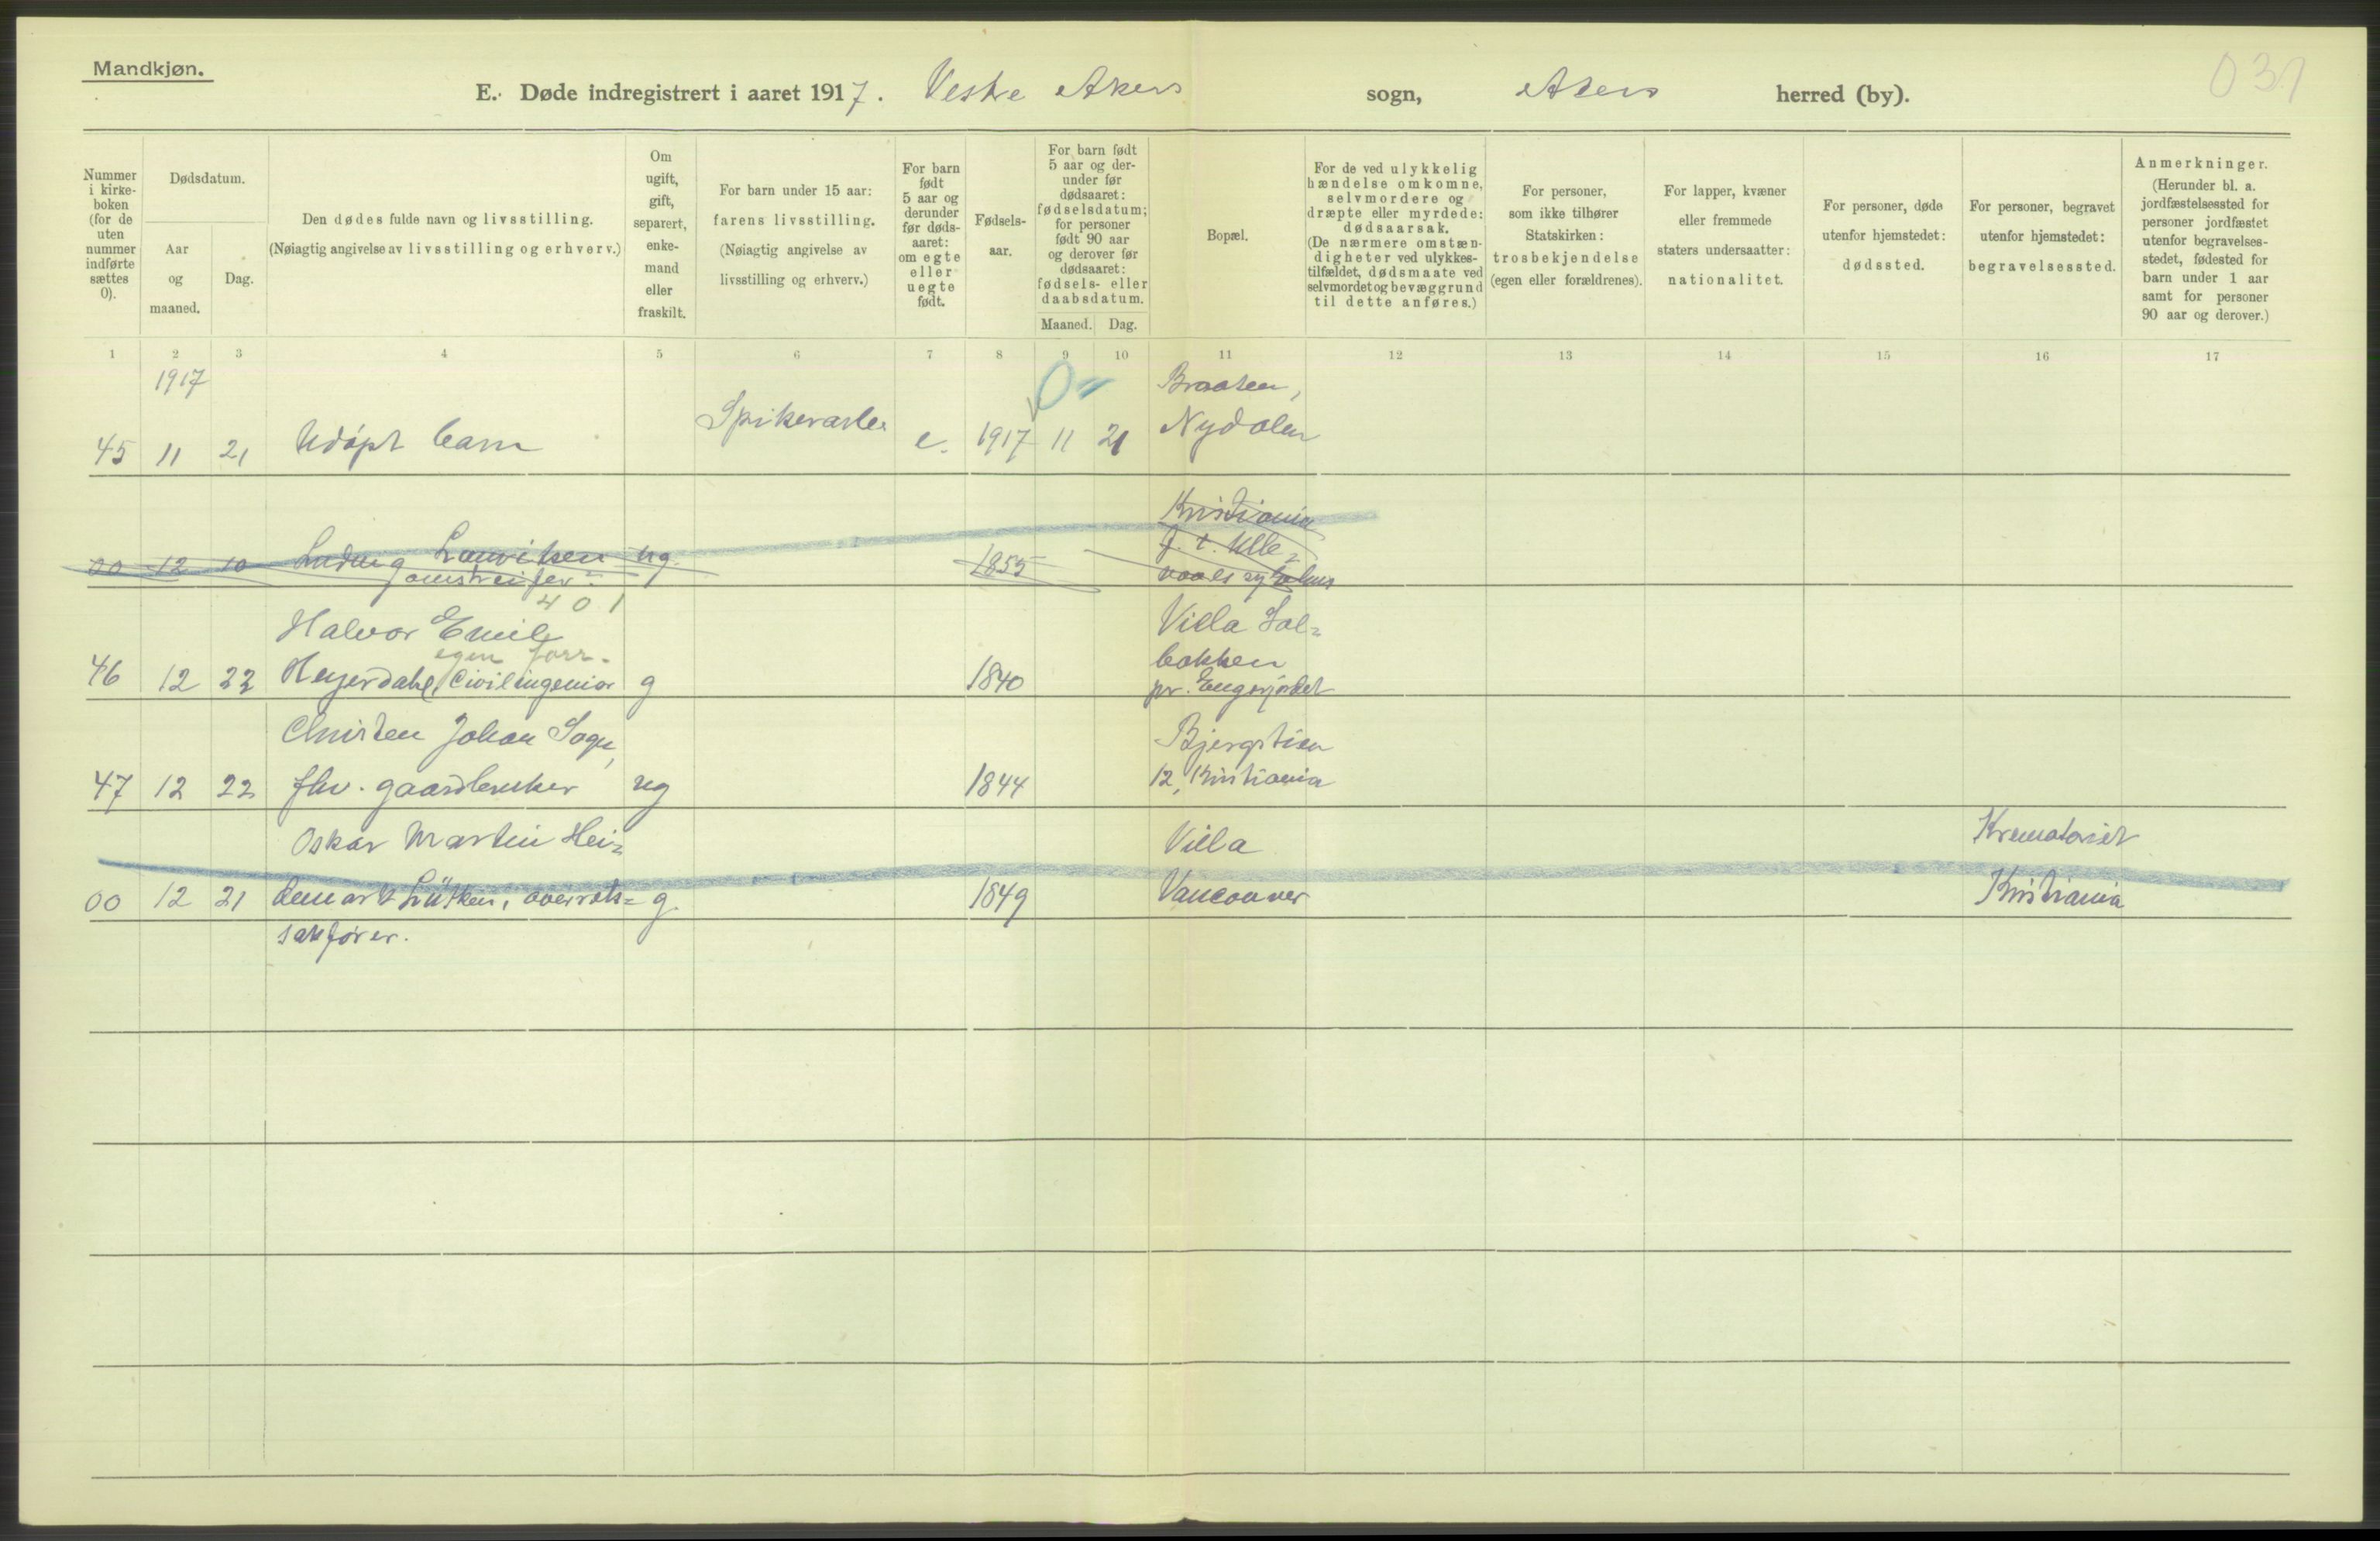 Mandkjøn.
031
E. Døde indregistrert i aaret 1917. Vestre Akers sogn, Akers herred (by).
Nummer i kirke-boken (for de uten nummer indførte sættes 0).
Dødsdatum.
Aar og maaned.
Dag.
Den dødes fulde navn og livsstilling.
(Nøiagtig angivelse av livsstilling og erhverv.)
Om ugift, gift, separert, enke-mand eller fraskilt.
For barn under 15 aar: farens livsstilling.
(Nøiagtig angivelse av livsstilling og erhverv.)
For barn født 5 aar og derunder før døds-aaret: om egte eller uegte født.
Fødsels-aar.
For barn født 5 aar og der-under før dødsaaret: fødselsdatum; for personer født 90 aar og derover før dødsaaret: fødsels- eller daabsdatum.
Maaned. Dag.
Bopæl.
For de ved ulykkelig hændelse omkomne, selvmordere og dræpte eller myrdede: dødsaarsak.
(De nærmere omstæn-digheter ved ulykkes-tilfældet, dødsmaate ved selvmordet og bevæggrund til dette anføres.)
For personer, som ikke tilhører Statskirken: trosbekjendelse (egen eller forældrenes).
For lapper, kvæner eller fremmede staters undersaatter: nationalitet.
For personer, døde utenfor hjemstedet: dødssted.
For personer, begravet utenfor hjemstedet: begravelsessted.
Anmerkninger.
(Herunder bl. a. jordfæstelsessted for personer jordfæstet utenfor begravelses-stedet, fødested for barn under 1 aar samt for personer 90 aar og derover.)
1 2 3 4 5 6 7 8 9 10 11 12 13 14 15 16 17
1917 0 Braaten,
45 11 21 Udøpt barn Spikerarb. e. 1917 11 21 Nydalen
Kristiania
00 12 10 Ludvig Lauritsen ug. 1855 f. t. Ulle-
omstreifer vaals sykehus
401
Halvor Emil Villa Sol-
egen forr. bakken
46 12 22 Heyerdahl, Civilingeniør g 1840 pr. Engerjordet
Christen Johan Sogn, Bjergstien
47 12 22 fhv. gaardbruker ug 1844 12, Kristiania
Oskar Martin Hei- Villa Krematoriet
00 12 21 demark Lütken, overrets- g. 1849 Vancouver Kristiania
sakfører.